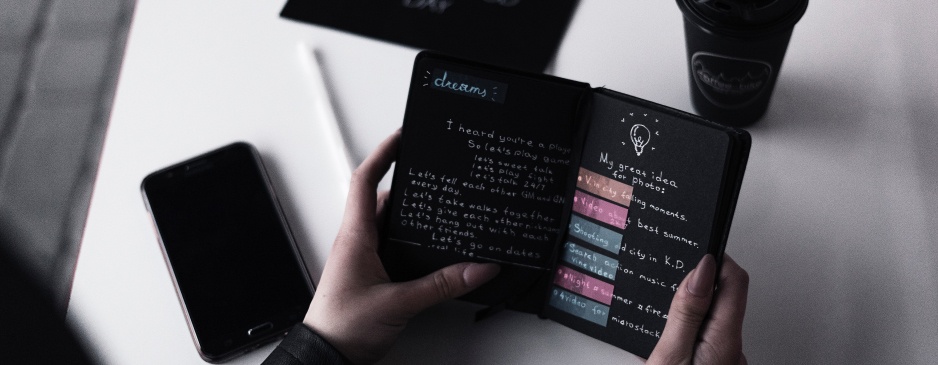 DAY
dreams
I heard you're a player
So let's play game
let's sweet talk
let's play fight
let's talk 24/7
Let's tell each other GM and GN
every day
Let's take walks together
Let's give each other
Let's hang out with each
other friends.
Let's go on dates
My great idea
for photo:
city falling moments.
Video best summer.
Shooting old city in K.D.
Search action music
vine video
Night summer fire
video for microstock